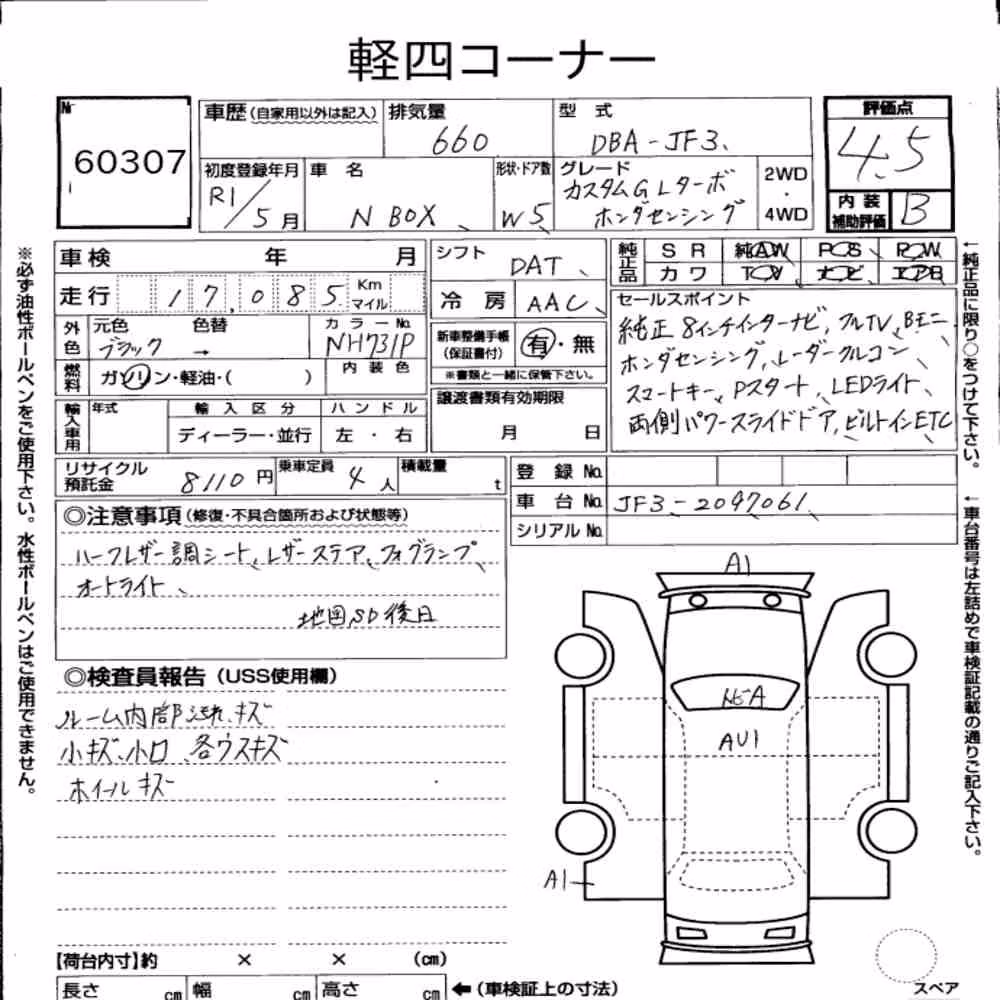 軽四コーナー
№
60307
車歴(自家用以外は記入)
排気量
660
型 式
DBA-JF3、
評価点
4.5
初度登録年月
R1/5月
車 名
N BOX、
形状・ドア数
W5、
グレード
カスタムGLターボ
ホンダセンシング
2WD
・
4WD
内 装
補助評価
B
車検 年 月
シフト
DAT、
純正品
SR 純AW PCS PCW
カワ TCV
走行 17,085 Km
マイル
冷 房
AAC、
セールスポイント
純正8インチインターナビ、フルTV、Bモニ
ホンダセンシング、レーダークルコン
スマートキー、Pスタート、LEDライト、
両側パワースライドドア、ビルトインETC
外色
元色 色替
ブラック →
カラーNo.
NH731P
新車整備手帳
(保証書付)
有・無
※書類と一緒に保管下さい。
燃料
ガソリン・軽油・( )
内 装 色
輸入車用
年式
輸 入 区 分
ディーラー・並行
ハ ン ド ル
左 ・ 右
譲渡書類有効期限
月 日
リサイクル
預託金
8110円
乗車定員
4人
積載量
t
登 録 No.
車 台 No.
JF3-2097061、
シリアル No.
◎注意事項(修復・不具合箇所および状態等)
ハーフレザー調シート、レザーステア、フォグランプ、
オートライト、
地図SD後日
◎検査員報告(USS使用欄)
ルーム内部汚れ、キズ
小キズ、小凹、各ウスキズ
ホイールキズ
A1
AU1
A1
【荷台内寸】約 × × (cm)
長さ cm 幅 cm 高さ cm
←(車検証上の寸法)
スペア
※必ず油性ボールペンをご使用下さい。水性ボールペンはご使用できません。
←純正品に限り○をつけて下さい。
←車台番号は左詰めで車検証記載の通りご記入下さい。